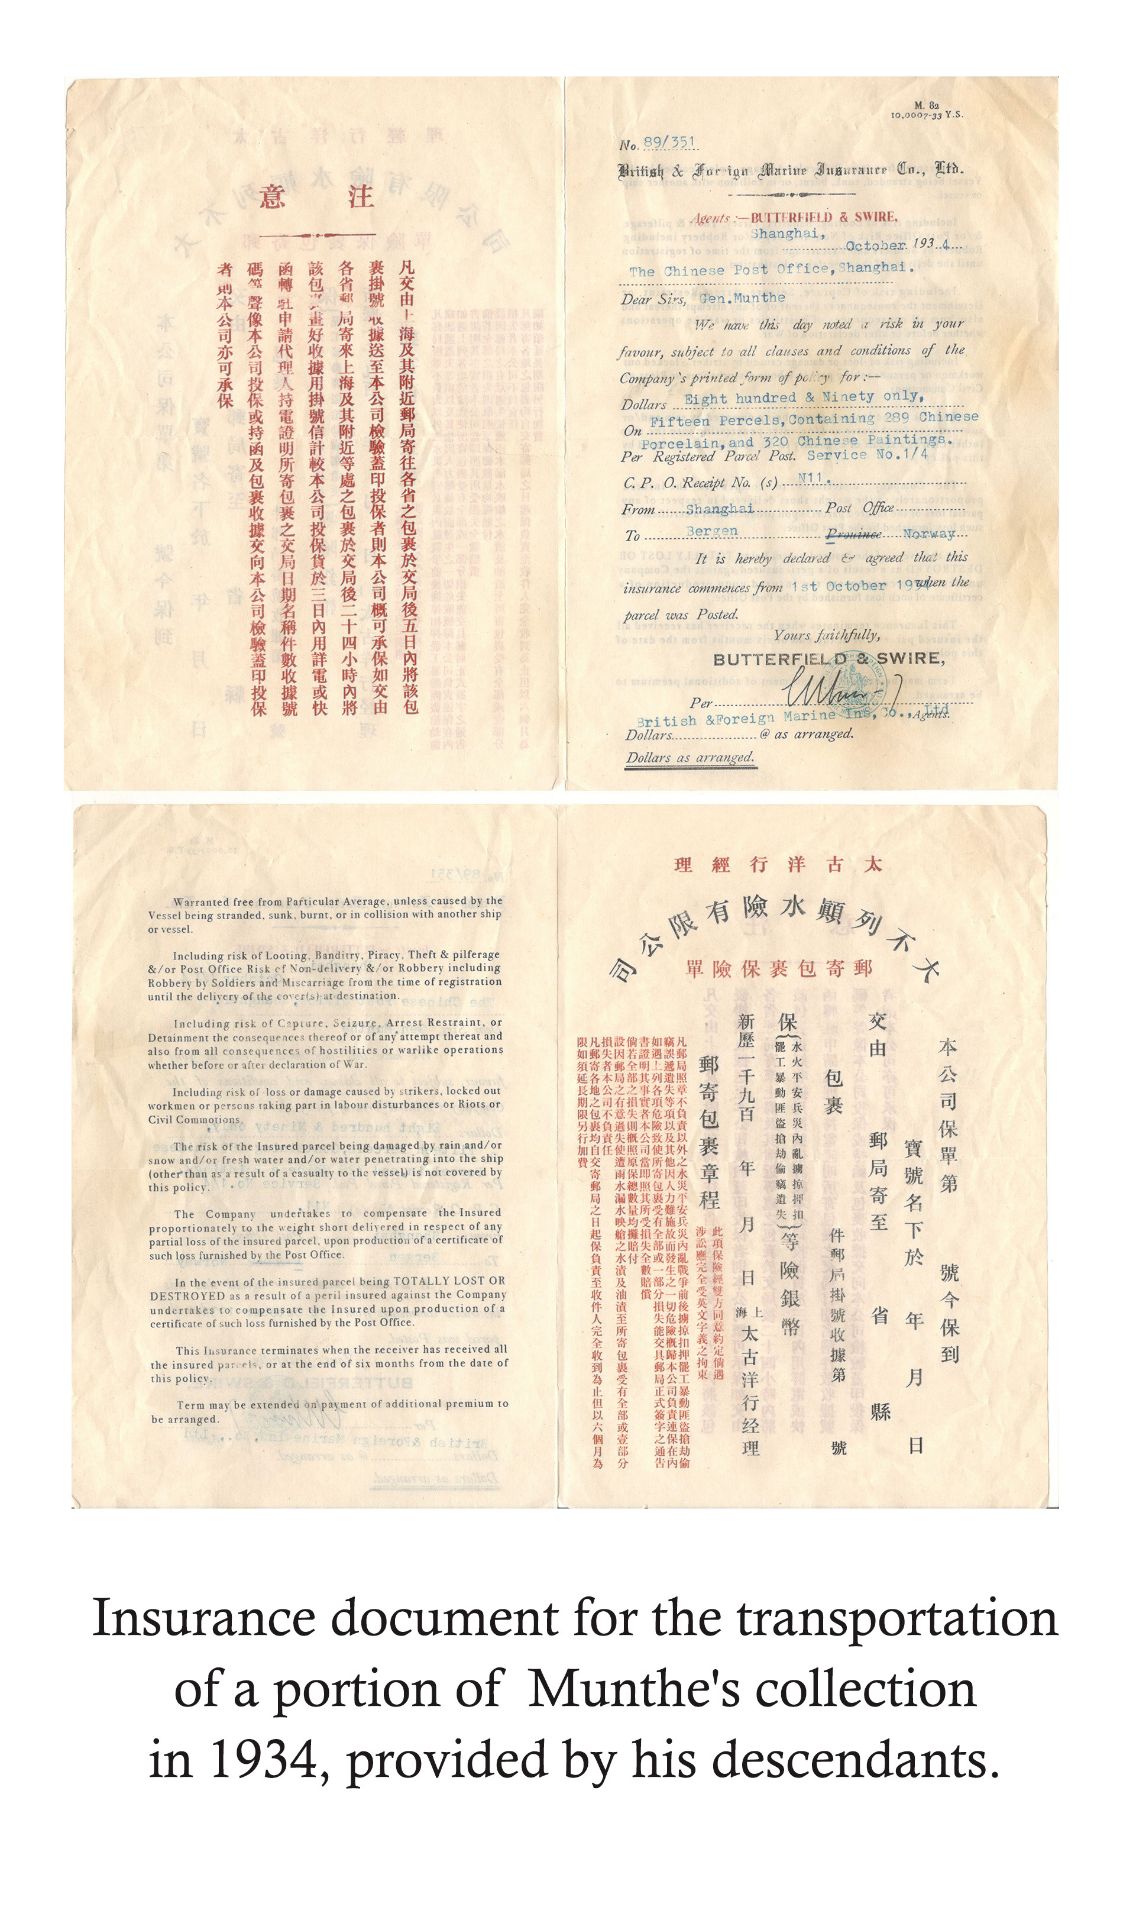 意 注
凡交由上海及其附近郵局寄往各省之包裹於交局後五日內將該包
裹掛號收據送至本公司檢驗蓋印投保者則本公司概可承保如交由
各省郵局寄來上海及其附近等處之包裹於交局後二十四小時內將
該包裹畫好收據用掛號信計較本公司投保貨於三日內用詳電或快
函轉駐申請代理人持電證明所寄包裹之交局日期名稱件數收據號
碼等聲像本公司投保或持函及包裹收據交向本公司檢驗蓋印投保
者則本公司亦可承保
M. 82
10,0007-33 Y.S.
No. 89/351.
British & Foreign Marine Insurance Co., Ltd.
Agents :—BUTTERFIELD & SWIRE,
Shanghai,
October 1934
The Chinese Post Office, Shanghai.
Dear Sirs, Gen.Munthe
We have this day noted a risk in your
favour, subject to all clauses and conditions of the
Company's printed form of policy for :—
Dollars Eight hundred & Ninety only,
On Fifteen Percels, Containing 289 Chinese
Porcelain, and 320 Chinese Paintings.
Per Registered Parcel Post. Service No.1/4
C. P. O. Receipt No. (s) N11.
From Shanghai Post Office
To Bergen Province Norway
It is hereby declared & agreed that this
insurance commences from 1st October 1934 when the
parcel was Posted.
Yours faithfully,
BUTTERFIELD & SWIRE,
Per
British &Foreign Marine Ins, Co., Ltd Agents.
Dollars @ as arranged.
Dollars as arranged.
Warranted free from Particular Average, unless caused by the
Vessel being stranded, sunk, burnt, or in collision with another ship
or vessel.
Including risk of Looting, Banditry, Piracy, Theft & pilferage
&/or Post Office Risk of Non-delivery &/or Robbery including
Robbery by Soldiers and Miscarriage from the time of registration
until the delivery of the cover(s) at destination.
Including risk of Capture, Seizure, Arrest Restraint, or
Detainment the consequences thereof or of any attempt thereat and
also from all consequences of hostilities or warlike operations
whether before or after declaration of War.
Including risk of loss or damage caused by strikers, locked out
workmen or persons taking part in labour disturbances or Riots or
Civil Commotions.
The risk of the Insured parcel being damaged by rain and/or
snow and/or fresh water and/or water penetrating into the ship
(other than as a result of a casualty to the vessel) is not covered by
this policy.
The Company undertakes to compensate the Insured
proportionately to the weight short delivered in respect of any
partial loss of the insured parcel, upon production of a certificate of
such loss furnished by the Post Office.
In the event of the insured parcel being TOTALLY LOST OR
DESTROYED as a result of a peril insured against the Company
undertakes to compensate the Insured upon production of a
certificate of such loss furnished by the Post Office.
This Insurance terminates when the receiver has received all
the insured parcels, or at the end of six months from the date of
this policy.
Term may be extended on payment of additional premium to
be arranged.
理經行洋古太
司公限有險水顚列不大
單險保裹包寄郵
本公司保單第 號今保到
寶號名下於 年 月 日
交由 郵局寄至 省 縣
包裹 件郵局掛號收據第 號
保 水火平安兵災內亂擄掠押扣
罷工暴動匪盜搶劫偷竊遺失 等險銀幣
新歷一千九百 年 月 日 上海 太古洋行经理
郵寄包裹章程 此項保險經雙方同意約定倘遇
涉訟應完全受英文字義之拘束
凡郵局照章不負責以外之水災平安兵災內亂戰爭前後擄掠扣押罷工暴動匪盜搶劫偷
竊誤遞遺失等項以及其他因人力難施故而發生之一切危險概歸本公司負責連保在內
如遇上列各項危險致使所寄包裹受有全部或一部分損失能交具郵局正式簽字之通告
書證明其事實者本公司當即照其所受損失全數賠償
倘若全部之損失則概照原保總數量均攤賠付
設因郵局之有意過失使遭雨水漏水映艙之水漬及油漬至所寄包裹受有全部或壹部分
損失者本公司不負責任
凡郵寄各地之包裹均自交寄郵局之日起保負責至收件人完全收到為止但以六個月為
限如須延長期限另行加費
Insurance document for the transportation
of a portion of Munthe's collection
in 1934, provided by his descendants.